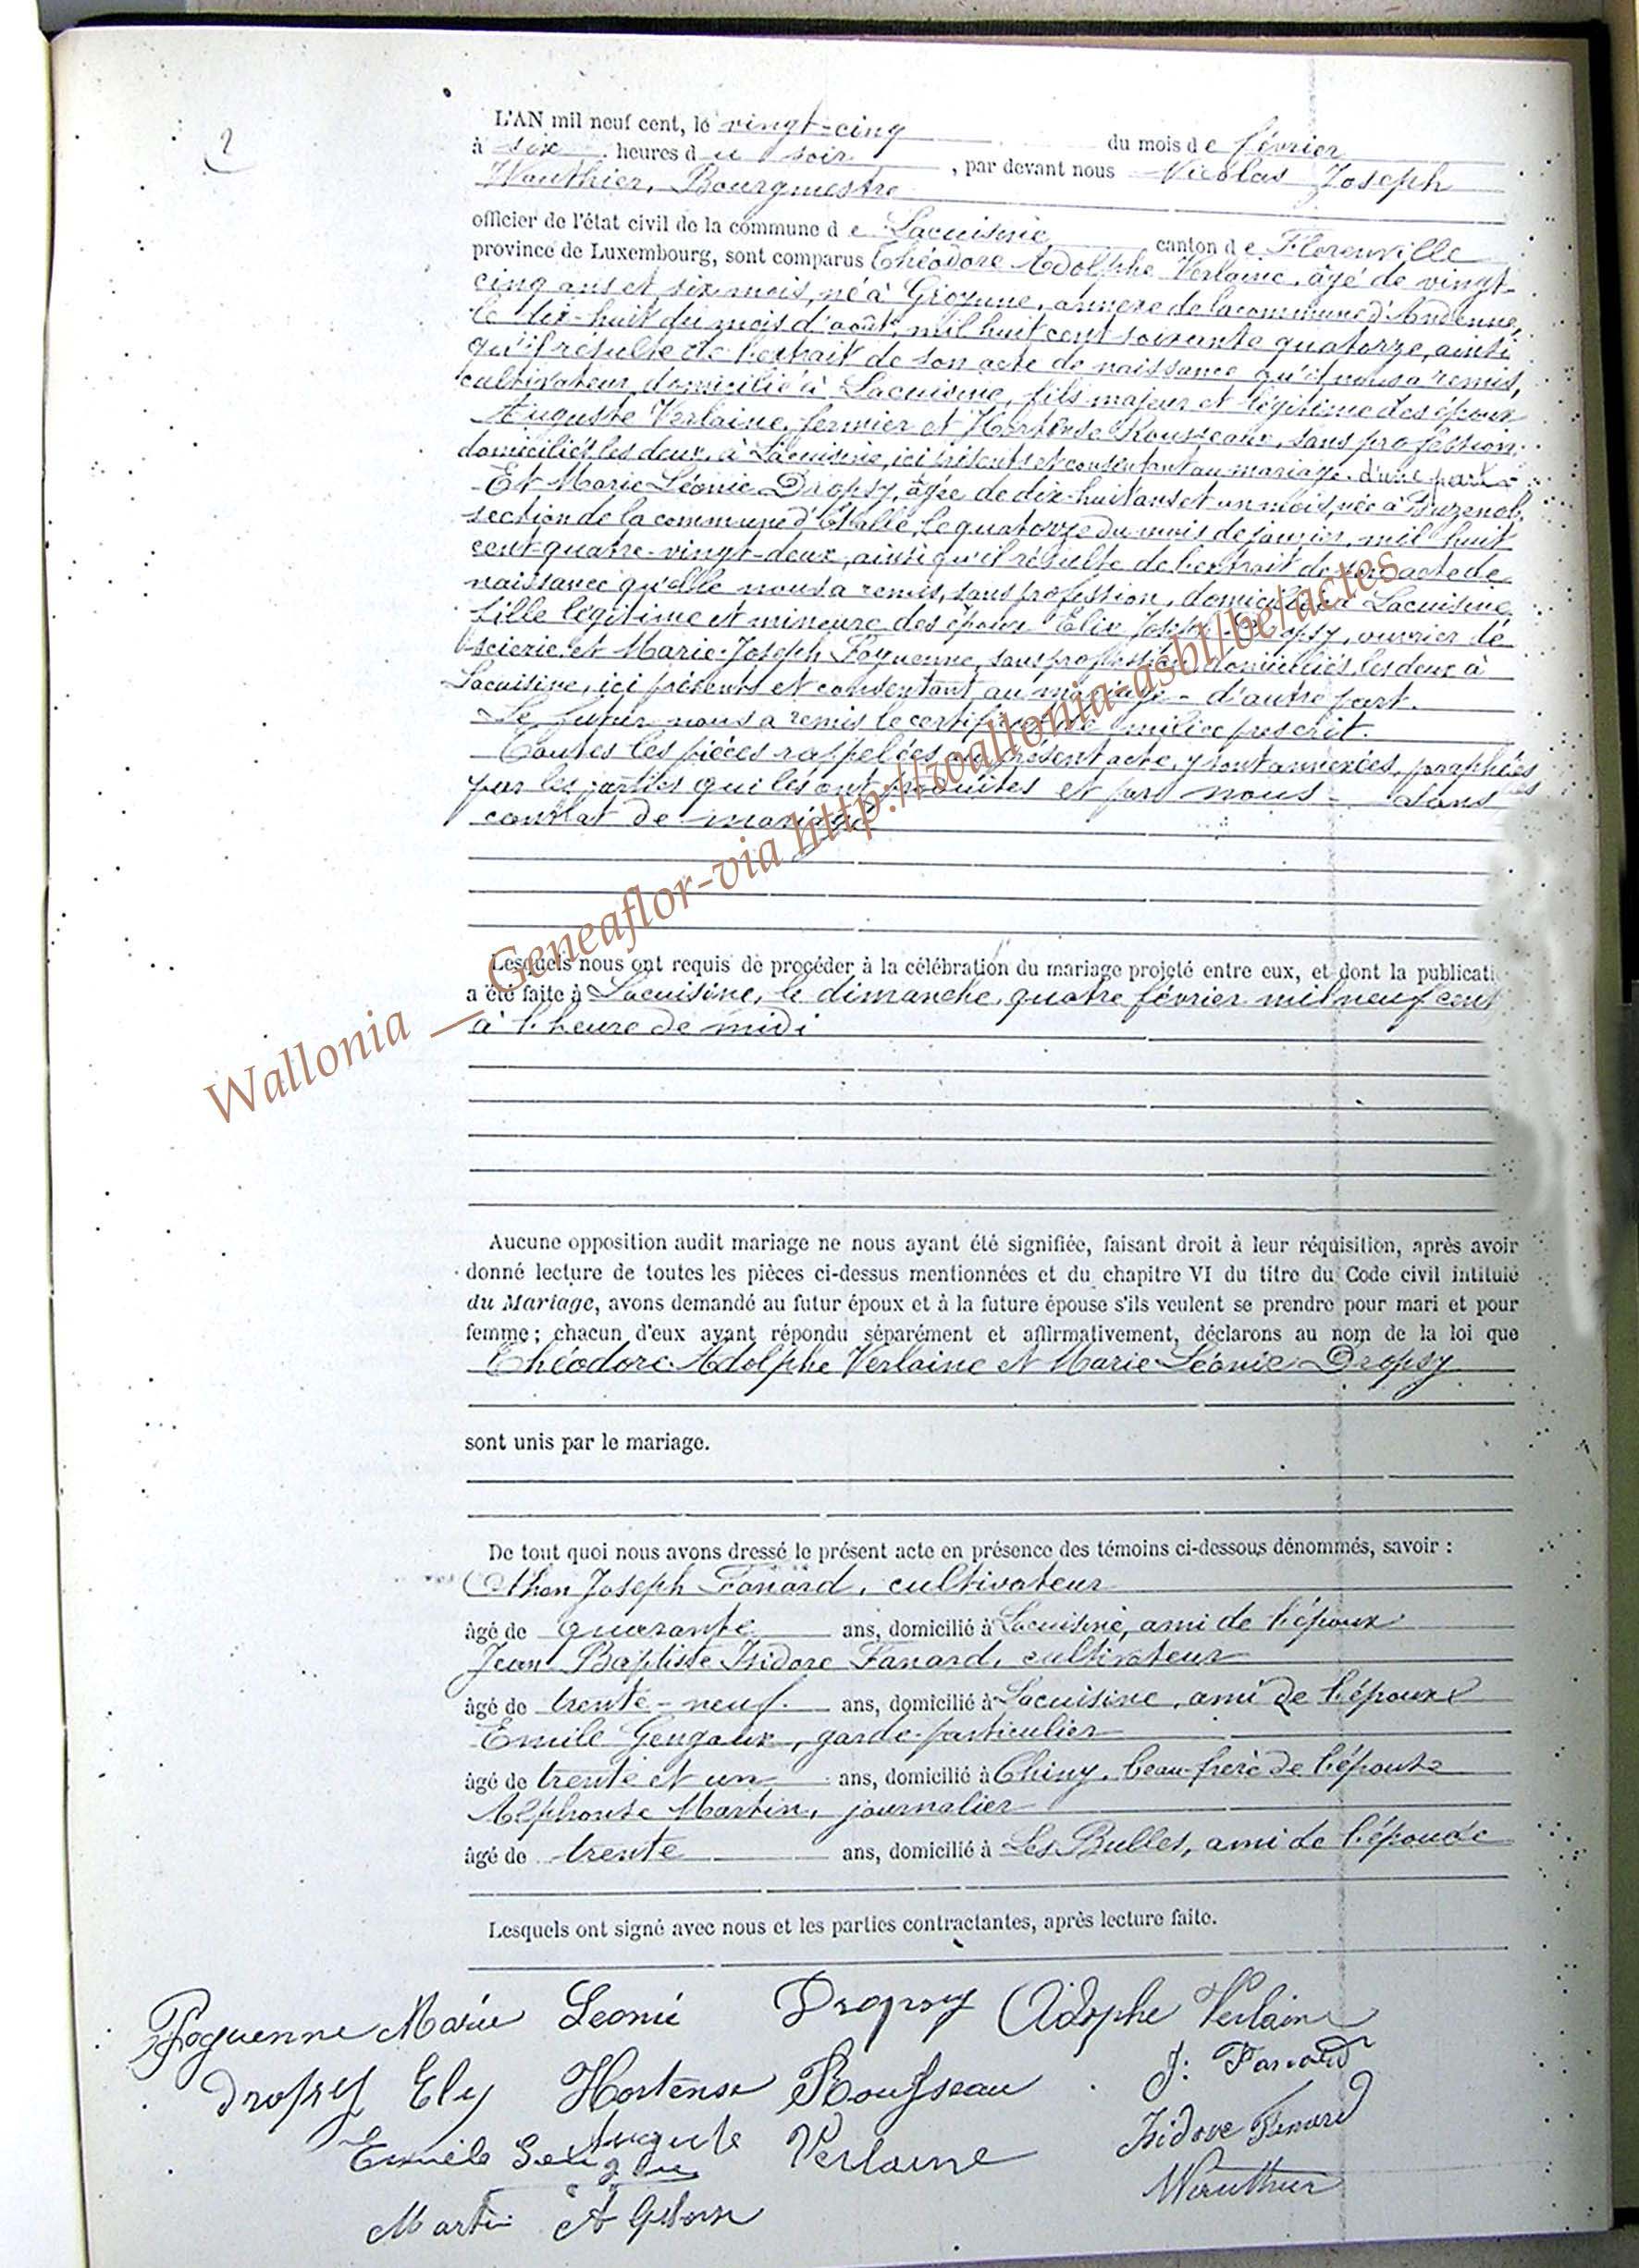 2
L'AN mil neuf cent, le vingt-cinq du mois de février
à six heures du soir, par devant nous Nicolas Joseph
Wauthier, Bourgmestre
officier de l'état civil de la commune de Lacuisine canton de Florenville
province de Luxembourg, sont comparus Théodore Adolphe Verlaine, âgé de vingt-
cinq ans et six mois, né à Groynne, annexe de la commune d'Andenne,
le dix-huit du mois d'août, mil huit cent soixante quatorze, ainsi
qu'il résulte de l'extrait de son acte de naissance qu'il nous a remis,
cultivateur, domicilié à Lacuisine, fils majeur et légitime des époux
Auguste Verlaine, fermier et Hortense Rousseaux, sans profession,
domiciliés les deux à Lacuisine, ici présents et consentant au mariage, d'une part
Et Marie Léonie Dropsy, âgée de dix-huit ans et un mois, née à Buzenol,
section de la commune d'Etalle, le quatorze du mois de janvier, mil huit
cent quatre-vingt-deux, ainsi qu'il résulte de l'extrait de son acte de
naissance qu'elle nous a remis, sans profession, domiciliée à Lacuisine,
fille légitime et mineure des époux Elie Joseph Dropsy, ouvrier de
scierie et Marie-Joseph Foguenne, sans profession, domiciliés les deux à
Lacuisine, ici présents et consentant au mariage - d'autre part.
Le futur nous a remis le certificat de milice prescrit.
Toutes les pièces rappelées au présent acte, y sont annexées, paraphées
par les parties qui les ont produites et par nous - Sans
contrat de mariage
Lesquels nous ont requis de procéder à la célébration du mariage projeté entre eux, et dont la publicati
a été faite à Lacuisine, le dimanche, quatre février mil neuf cent
à l'heure de midi
Wallonia __ Geneaflor-via http://wallonia-asbl/be/actes
Aucune opposition audit mariage ne nous ayant été signifiée, faisant droit à leur réquisition, après avoir
donné lecture de toutes les pièces ci-dessus mentionnées et du chapitre VI du titre du Code civil intitulé
du Mariage, avons demandé au futur époux et à la future épouse s'ils veulent se prendre pour mari et pour
femme; chacun d'eux ayant répondu séparément et affirmativement, déclarons au nom de la loi que
Théodore Adolphe Verlaine et Marie Léonie Dropsy
sont unis par le mariage.
De tout quoi nous avons dressé le présent acte en présence des témoins ci-dessous dénommés, savoir :
Othon Joseph Fanard, cultivateur
âgé de quarante ans, domicilié à Lacuisine, ami de l'époux
Jean Baptiste Isidore Fanard, cultivateur
âgé de trente-neuf ans, domicilié à Lacuisine, ami de l'époux
Emile Gengoux, garde-particulier
âgé de trente et un ans, domicilié à Chiny, beau-frère de l'épouse
Alphonse Martin, journalier
âgé de trente ans, domicilié à Les Bulles, ami de l'épouse
Lesquels ont signé avec nous et les parties contractantes, après lecture faite.
Foguenne Marie Leonie Dropsy Adophe Verlaine
Dropsy Ely Hortense Rousseau J. Fanard
Emile Auguste Verlaine Isidore Fanard
Martin Wauthier